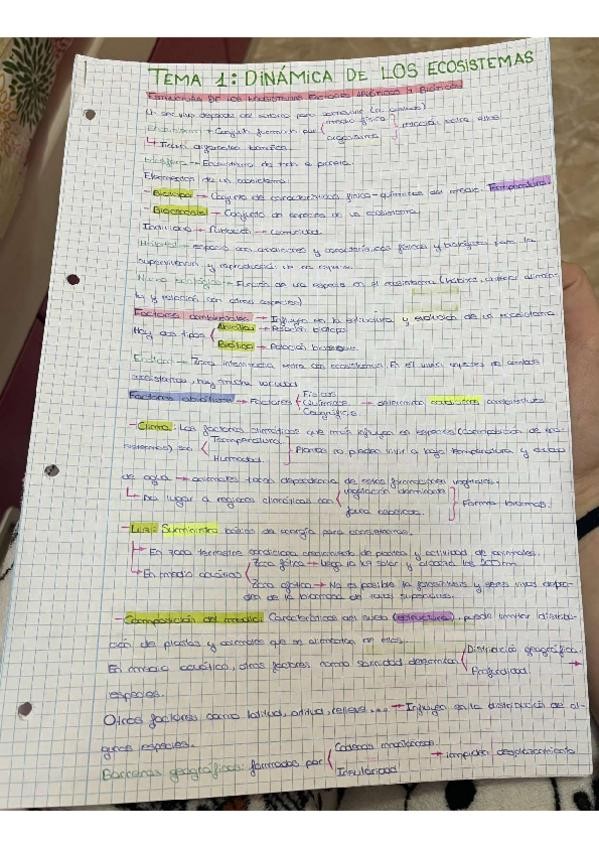 TEMA 1: DINÁMICA DE LOS ECOSISTEMAS
ESTRUCTURA DE LOS ECOSISTEMAS: FACTORES ABIÓTICOS Y BIÓTICOS
Un ser vivo depende del entorno para sobrevivir
Ecosistema → Conjunto formado por { medio físico } relación entre ellos
organismos
↳ Tienen
Ecosfera → Ecosistema de todo el planeta
Elementos de un ecosistema
- Biotopo → Conjunto de características físico-químicas del medio. Temperatura.
- Biocenosis → Conjunto de especies de un ecosistema
Individuo → Población → Comunidad.
Hábitat → espacio con condiciones y características físicas y biológicas para la
supervivencia y reproducción de una especie.
Nicho ecológico → Función de una especie en el ecosistema (hábitat,
ta y relación con otras especies)
Factores ambientales → Influyen en la estructura y evolución de un ecosistema
Hay dos tipos { Abióticos → Relación biotopo
Bióticos → Relación biocenosis
Ecotono → Zona intermedia entre dos ecosistemas. En él viven especies de ambos
ecosistemas, hay mucha variedad
Factores abióticos → Factores { Físicos
Químicos → determinan condiciones ambientales
Geográficos
- Clima: Los factores climáticos que más influyen en especies (composición de eco-
sistemas) son { Temperatura } Plantas no pueden vivir a baja temperatura y escasez
Humedad
de agua → animales tienen dependencia de estas formaciones vegetales.
↳ Da lugar a regiones climáticas con { vegetación dominante } Forma biomas.
fauna
- Luz: Suministro básico de energía para ecosistemas.
↳ En zona terrestre condiciona crecimiento de plantas y actividad de animales.
↳ En medio acuático { Zona fótica → Llega la luz solar y alcanza los 200m
Zona afótica → No es posible la fotosíntesis y seres vivos depen-
den de la biomasa de zonas superiores.
- Composición del medio: Características del suelo (estructura), puede limitar distribu-
ción de plantas y animales que se alimentan en ellas.
En medio acuático, otros factores como salinidad determinan { Distribución geográfica
Profundidad →
especies.
Otros factores como latitud, altitud, relieve... → Influyen en la distribución de al-
gunas especies.
Barreras geográficas: formadas por { Cadenas montañosas → impiden desplazamiento
Insularidad